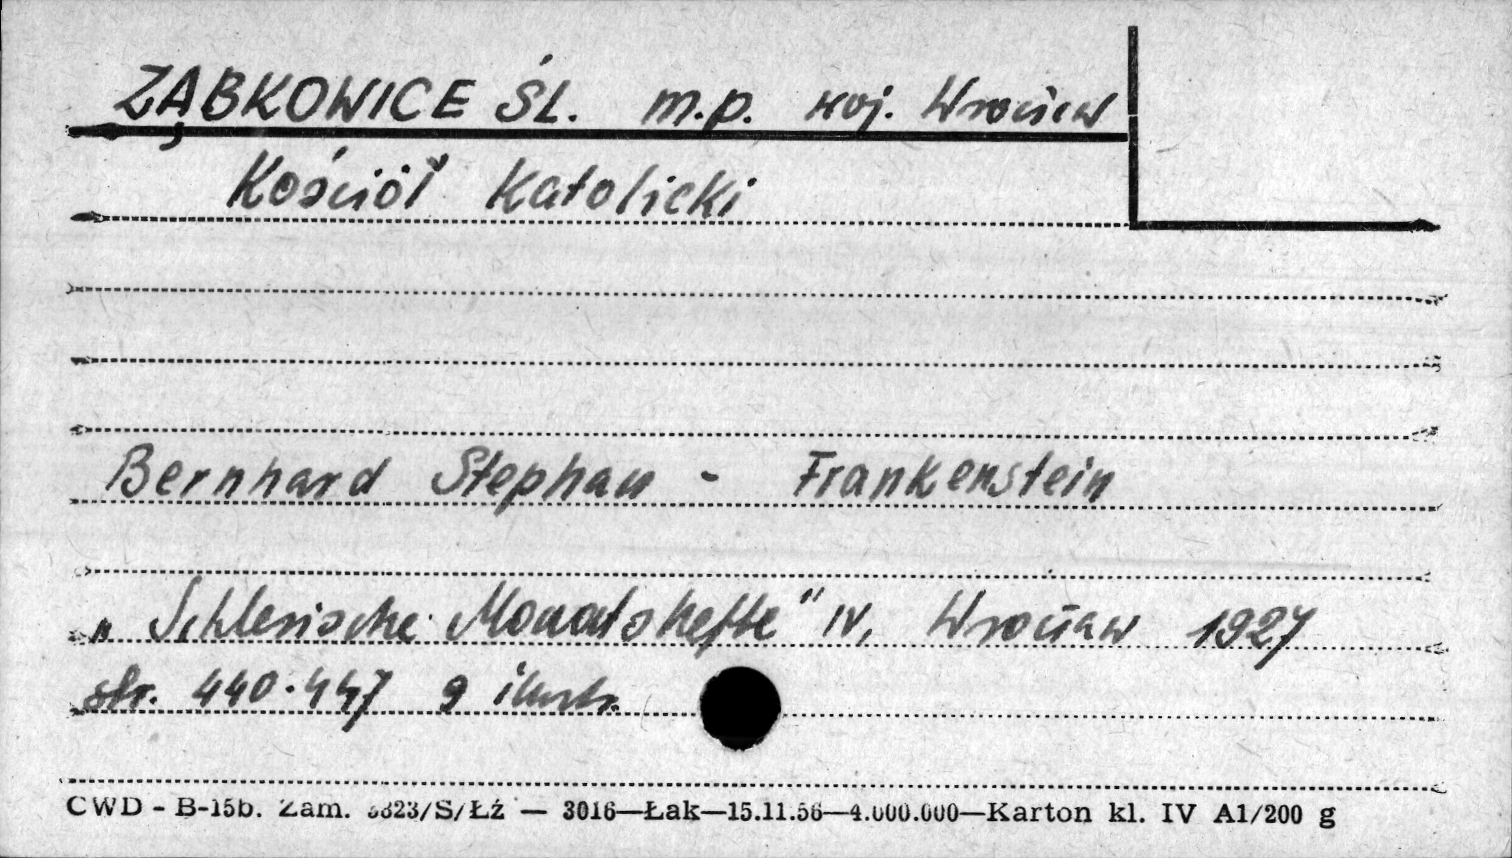 ZĄBKOWICE ŚL. m.p. woj. Wrocław
Kościół Katolicki
Bernhard Stephan - Frankenstein
„Schlesische Monatshefte" IV, Wrocław 1927
str. 440-447 9 ilustr.
CWD - B-15b. Zam. 3823/S/Łź — 3016—Łak—15.11.56—4.000.000—Karton kl. IV A1/200 g